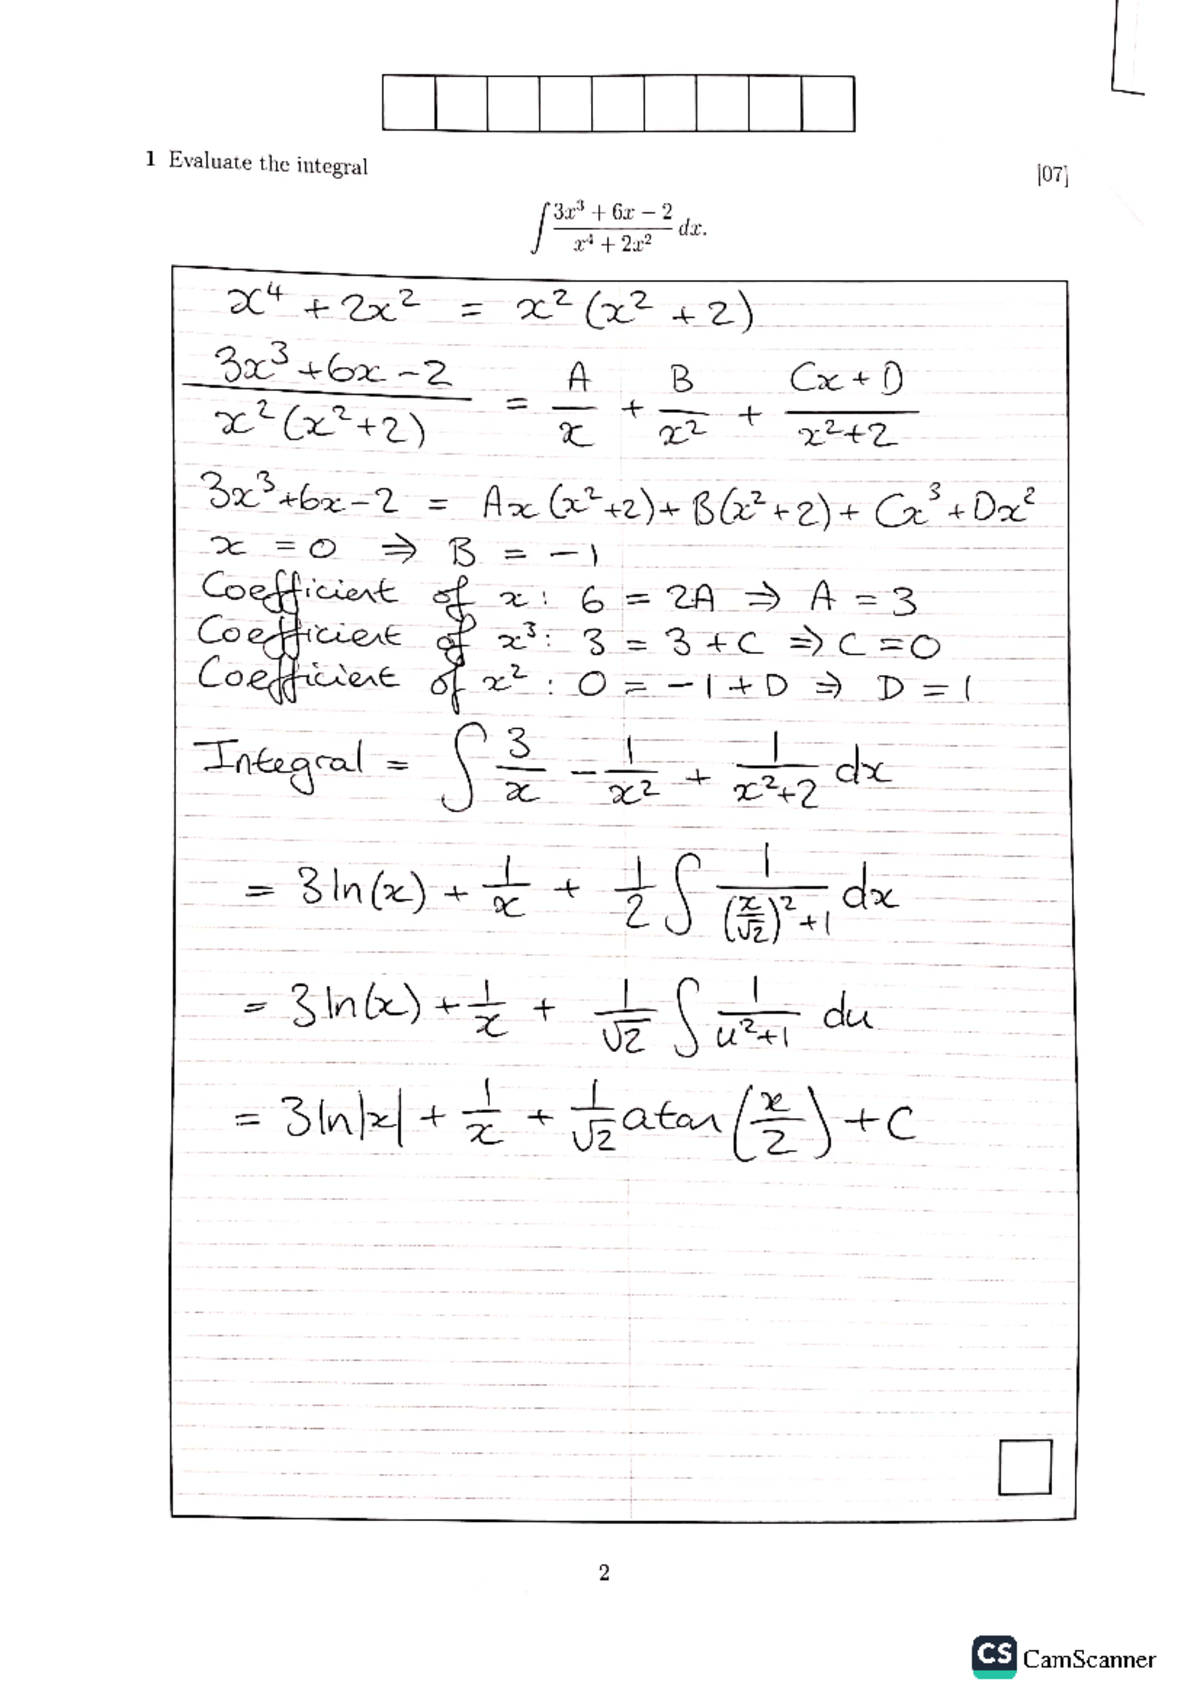 1 Evaluate the integral [07]
∫ (3x³ + 6x − 2)/(x⁴ + 2x²) dx.
x⁴ + 2x² = x²(x² + 2)
(3x³+6x−2)/(x²(x²+2)) = A/x + B/x² + (Cx + D)/(x²+2)
3x³+6x−2 = Ax(x²+2)+B(x²+2)+Cx³+Dx²
x = 0 ⇒ B = −1
Coefficient of x: 6 = 2A ⇒ A = 3
Coefficient of x³: 3 = 3+C ⇒ C = 0
Coefficient of x²: 0 = −1+D ⇒ D = 1
Integral = ∫ 3/x − 1/x² + 1/(x²+2) dx
= 3ln(x) + 1/x + 1/2 ∫ 1/((x/√2)²+1) dx
= 3ln(x) + 1/x + 1/√2 ∫ 1/(u²+1) du
= 3ln|x| + 1/x + 1/√2 atan(x/2) + C
2
CS CamScanner